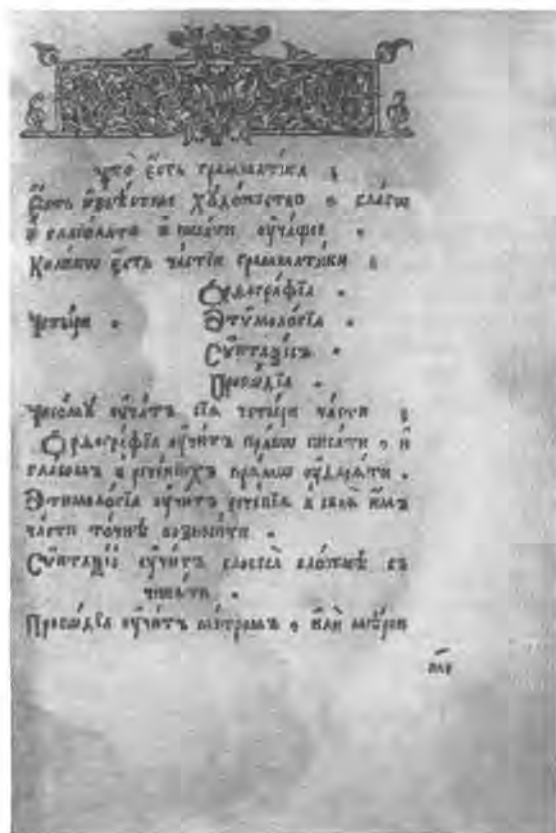 Что̀ Е҆́сть грамматі́ка ;
Е҆́сть и҆звѣ́стное Хꙋдо́жество , бла́гѡ
и҆ глаго́лати и҆ писа́ти оу҆ча́щее .
Коли́кѡ Е҆́сть ча́стїй грамматі́ки ;
Ѻ҆рѳогра́фїа .
Четы́ри . Э҆тѷмоло́гїа .
Сѵ́нтаѯїсъ .
Просѡ́дїа .
Чесомꙋ̀ оу҆ча́тъ сїѧ̑ четы́ри ча́сти ;
Ѻ҆рѳогра́фїа оу҆чи́тъ пра́вѡ писа́ти , и҆
гла́сомъ в̾ рече́нїихъ прѧ́мѡ оу҆дарѧ́ти .
Э҆тѷмоло́гїа оу҆чи́тъ рече́нїѧ в̾ своѧ̑ и҆̀мъ
ча́сти то́чнѣ возноси́ти .
Сѵ́нтаѯїсъ оу҆чи́тъ словеса̀ сло́жнѣ съ
чинѧ́ти .
Просѡ́дїа оу҆чи́тъ ме́тромъ , и҆лѝ мѣ́рою